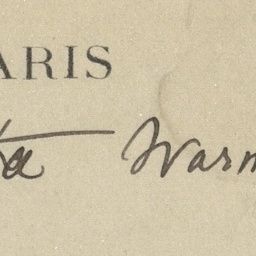 ARIS
ta Warm